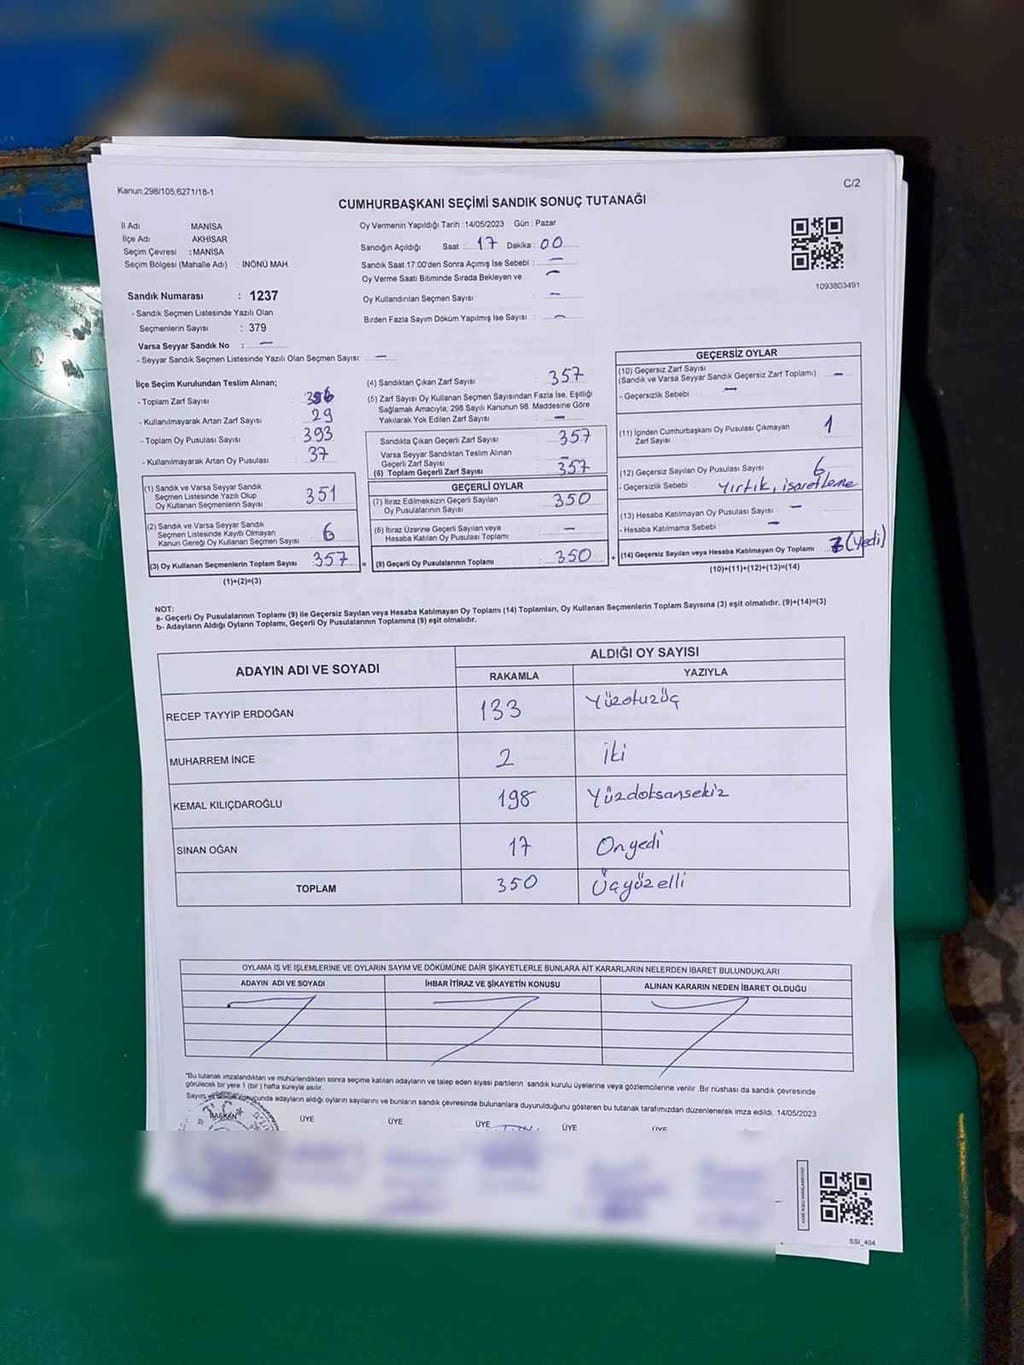 Kanun:298/105;6271/18-1
C/2
CUMHURBAŞKANI SEÇİMİ SANDIK SONUÇ TUTANAĞI
İl Adı MANİSA
İlçe Adı AKHİSAR
Seçim Çevresi : MANİSA
Seçim Bölgesi (Mahalle Adı) : İNÖNÜ MAH.
Oy Vermenin Yapıldığı Tarih :14/05/2023 Gün : Pazar
Sandığın Açıldığı Saat : 17 Dakika : 00
Sandık Saat 17:00'den Sonra Açımış İse Sebebi : —
Oy Verme Saati Bitiminde Sırada Bekleyen ve —
Oy Kullandırılan Seçmen Sayısı : —
Birden Fazla Sayım Döküm Yapılmış İse Sayısı : —
1093803491
Sandık Numarası : 1237
- Sandık Seçmen Listesinde Yazılı Olan
Seçmenlerin Sayısı : 379
Varsa Seyyar Sandık No : —
- Seyyar Sandık Seçmen Listesinde Yazılı Olan Seçmen Sayısı: —
İlçe Seçim Kurulundan Teslim Alınan;
- Toplam Zarf Sayısı :
- Kullanılmayarak Artan Zarf Sayısı : 29
- Toplam Oy Pusulası Sayısı : 393
- Kullanılmayarak Artan Oy Pusulası : 37
(1) Sandık ve Varsa Seyyar Sandık
Seçmen Listesinde Yazılı Olup
Oy Kullanan Seçmenlerin Sayısı : 351
(2) Sandık ve Varsa Seyyar Sandık
Seçmen Listesinde Kayıtlı Olmayan
Kanun Gereği Oy Kullanan Seçmen Sayısı : 6
(3) Oy Kullanan Seçmenlerin Toplam Sayısı : 357
(1)+(2)=(3)
(4) Sandıktan Çıkan Zarf Sayısı : 357
(5) Zarf Sayısı Oy Kullanan Seçmen Sayısından Fazla İse, Eşitliği
Sağlamak Amacıyla; 298 Sayılı Kanunun 98. Maddesine Göre
Yakılarak Yok Edilen Zarf Sayısı : —
Sandıkta Çıkan Geçerli Zarf Sayısı : 357
Varsa Seyyar Sandıktan Teslim Alınan
Geçerli Zarf Sayısı : —
(6) Toplam Geçerli Zarf Sayısı : 357
GEÇERLİ OYLAR
(7) İtiraz Edilmeksizin Geçerli Sayılan
Oy Pusulalarının Sayısı : 350
(8) İtiraz Üzerine Geçerli Sayılan veya
Hesaba Katılan Oy Pusulası Toplamı : —
= (9) Geçerli Oy Pusulalarının Toplamı : 350
GEÇERSİZ OYLAR
(10) Geçersiz Zarf Sayısı
(Sandık ve Varsa Seyyar Sandık Geçersiz Zarf Toplamı) : —
- Geçersizlik Sebebi : —
(11) İçinden Cumhurbaşkanı Oy Pusulası Çıkmayan
Zarf Sayısı : 1
(12) Geçersiz Sayılan Oy Pusulası Sayısı : 6
- Geçersizlik Sebebi : Yırtık, işaretleme
(13) Hesaba Katılmayan Oy Pusulası Sayısı : —
- Hesaba Katılmama Sebebi : —
+ (14) Geçersiz Sayılan veya Hesaba Katılmayan Oy Toplamı : 7 (Yedi)
(10)+(11)+(12)+(13)=(14)
NOT:
a- Geçerli Oy Pusulalarının Toplamı (9) ile Geçersiz Sayılan veya Hesaba Katılmayan Oy Toplamı (14) Toplamları, Oy Kullanan Seçmenlerin Toplam Sayısına (3) eşit olmalıdır. (9)+(14)=(3)
b- Adayların Aldığı Oyların Toplamı, Geçerli Oy Pusulalarının Toplamına (9) eşit olmalıdır.
ADAYIN ADI VE SOYADI ALDIĞI OY SAYISI
RAKAMLA YAZIYLA
RECEP TAYYİP ERDOĞAN 133 Yüzotuzüç
MUHARREM İNCE 2 İki
KEMAL KILIÇDAROĞLU 198 Yüzdoksansekiz
SİNAN OĞAN 17 Onyedi
TOPLAM 350 Üçyüzelli
OYLAMA İŞ VE İŞLEMLERİNE VE OYLARIN SAYIM VE DÖKÜMÜNE DAİR ŞİKAYETLERLE BUNLARA AİT KARARLARIN NELERDEN İBARET BULUNDUKLARI
ADAYIN ADI VE SOYADI İHBAR İTİRAZ VE ŞİKAYETİN KONUSU ALINAN KARARIN NEDEN İBARET OLDUĞU
*Bu tutanak imzalandıktan ve mühürlendikten sonra seçime katılan adayların ve talep eden siyasi partilerin sandık kurulu üyelerine veya gözlemcilerine verilir. Bir nüshası da sandık çevresinde
görülecek bir yere 1 (bir) hafta süreyle asılır.
Sayım ve sonucunda adayların aldığı oyların sayılarını ve bunların sandık çevresinde bulunanlara duyurulduğunu gösteren bu tutanak tarafımızdan düzenlenerek imza edildi. 14/05/2023
BAŞKAN ÜYE ÜYE ÜYE ÜYE ÜYE
SSI_404